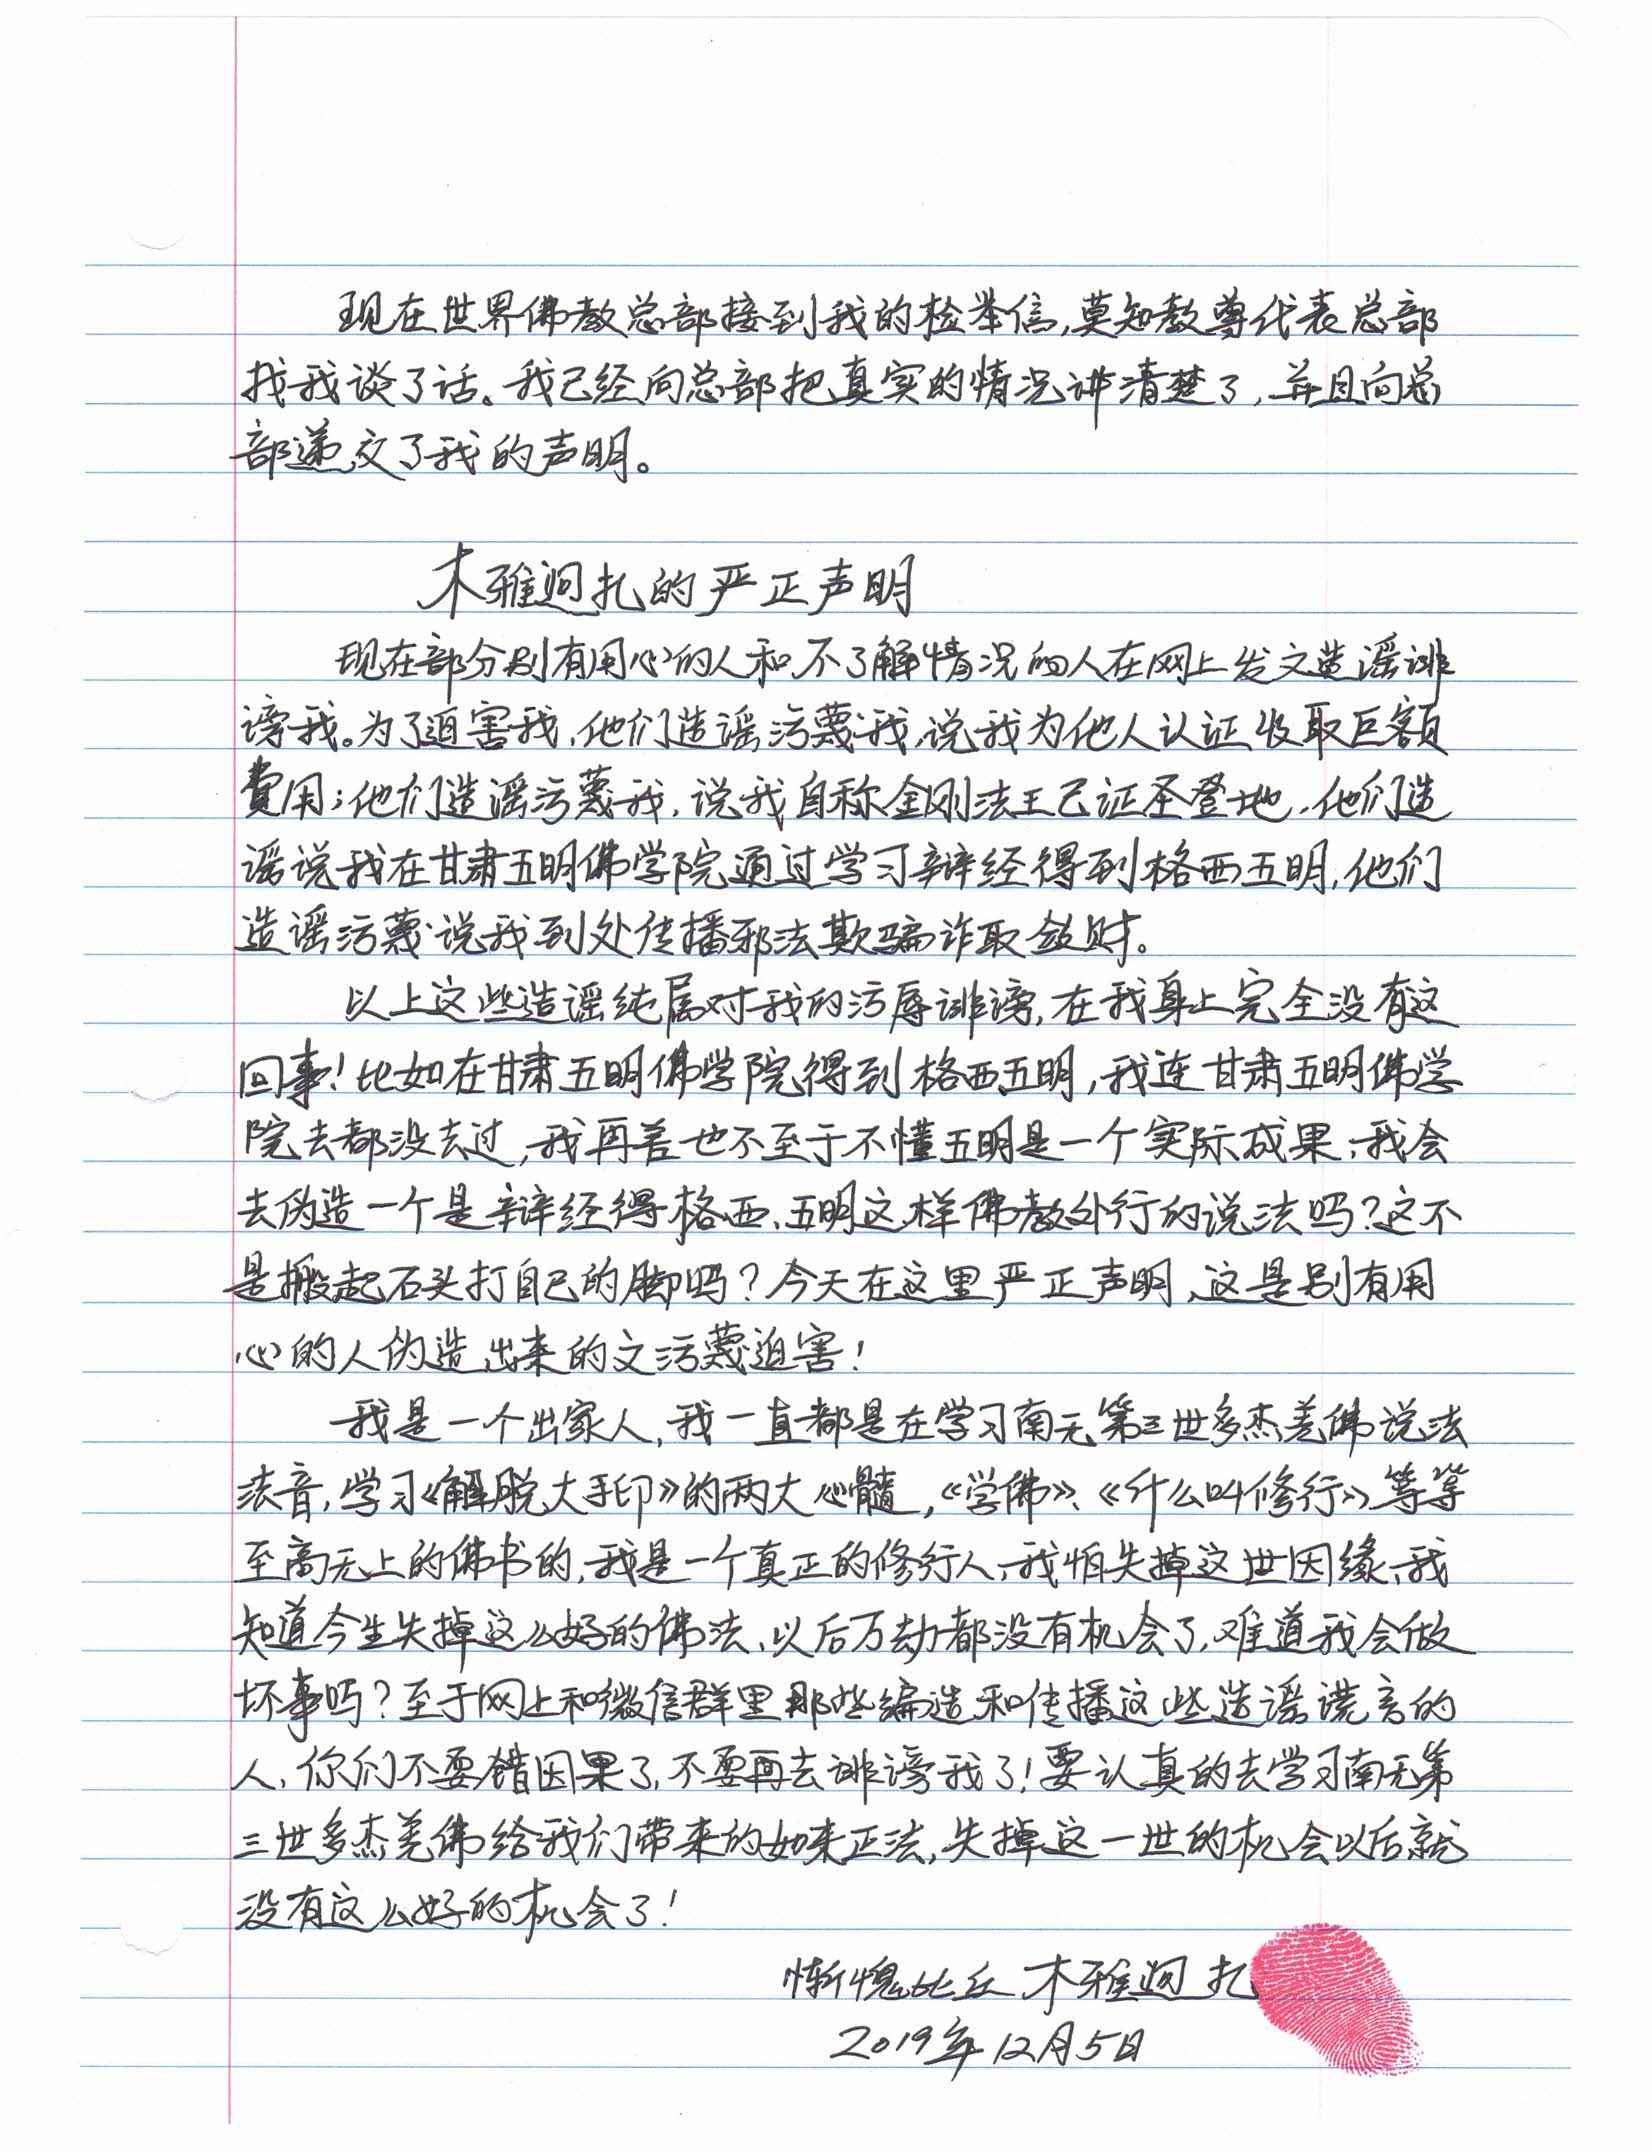 现在世界佛教总部接到我的检举信，莫知教尊代表总部
找我谈了话。我已经向总部把真实的情况讲清楚了，并且向总
部递交了我的声明。
木雅迥扎的严正声明
现在部分别有用心的人和不了解情况的人在网上发文造谣诽
谤我。为了迫害我，他们造谣污蔑我，说我为他人认证收取巨额
費用；他们造谣污蔑我，说我自称金刚法王已证圣登地，他们造
谣说我在甘肃五明佛学院通过学习辩经得到格西五明，他们
造谣污蔑说我到处传播邪法欺骗诈取敛财。
以上这些造谣纯属对我的污辱诽谤，在我身上完全没有这
回事！比如在甘肃五明佛学院得到格西五明，我连甘肃五明佛学
院去都没去过，我再差也不至于不懂五明是一个实际成果，我会
去伪造一个是辩经得格西、五明这样佛教外行的说法吗？这不
是搬起石头打自己的脚吗？今天在这里严正声明，这是别有用
心的人伪造出来的文污蔑迫害！
我是一个出家人，我一直都是在学习南无第三世多杰羌佛说法
法音，学习《解脱大手印》的两大心髓，《学佛》、《什么叫修行》等等
至高无上的佛书的，我是一个真正的修行人，我怕失掉这世因缘，我
知道今生失掉这么好的佛法，以后万劫都没有机会了，难道我会做
坏事吗？至于网上和微信群里那些编造和传播这些造谣谎言的
人，你们不要错因果了，不要再去诽谤我了！要认真的去学习南无第
三世多杰羌佛给我们带来的如来正法，失掉这一世的机会以后就
没有这么好的机会了！
惭愧比丘 木雅迥扎
2019年12月5日